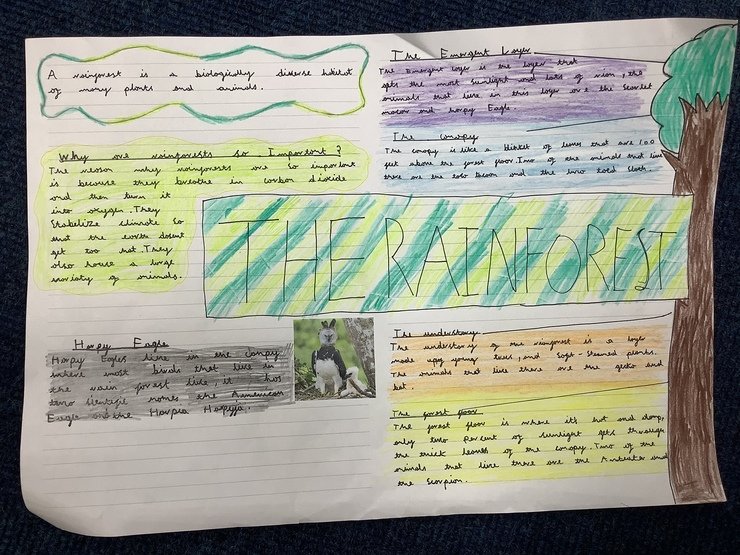 A rainforest is a biologically diverse habitat
of many plants and animals.
Why are rainforests so Important?
The reason why rainforests are so important
is because they breathe in carbon dioxide
and then turn it
into oxygen. They
Stabelize climate so
that the earth doesnt
get too hot. They
also house a large
variaty of animals.
THE RAINFOREST
Harpy Eagle
Harpy Eagles live in the Canpy
where most birds that live in
the rain forest live, it has
two names the
Eagle and the Harpia Harpyja.
The Emergent Layer
The Emergent layer is the layer that
gets the most sunlight and lots of rain, the
animals that live in this layer are the Scarlet
macaw and harpy Eagle.
The Canopy
The canopy is like a blanket of leaves that are 100
feet above the forest floor. Two of the animals that live
there are the toco and the two toed Sloth.
The understory
The understory of the rainforest is a layer
made up of young trees, and Soft-Stemmed plants.
The animals that live there are the gecko and
bat.
The forest floor
The forest floor is where it's hot and damp,
only two percent of sunlight gets through
the thick leaves of the canopy. Two of the
animals that live there are the Anteater and
the Scorpion.